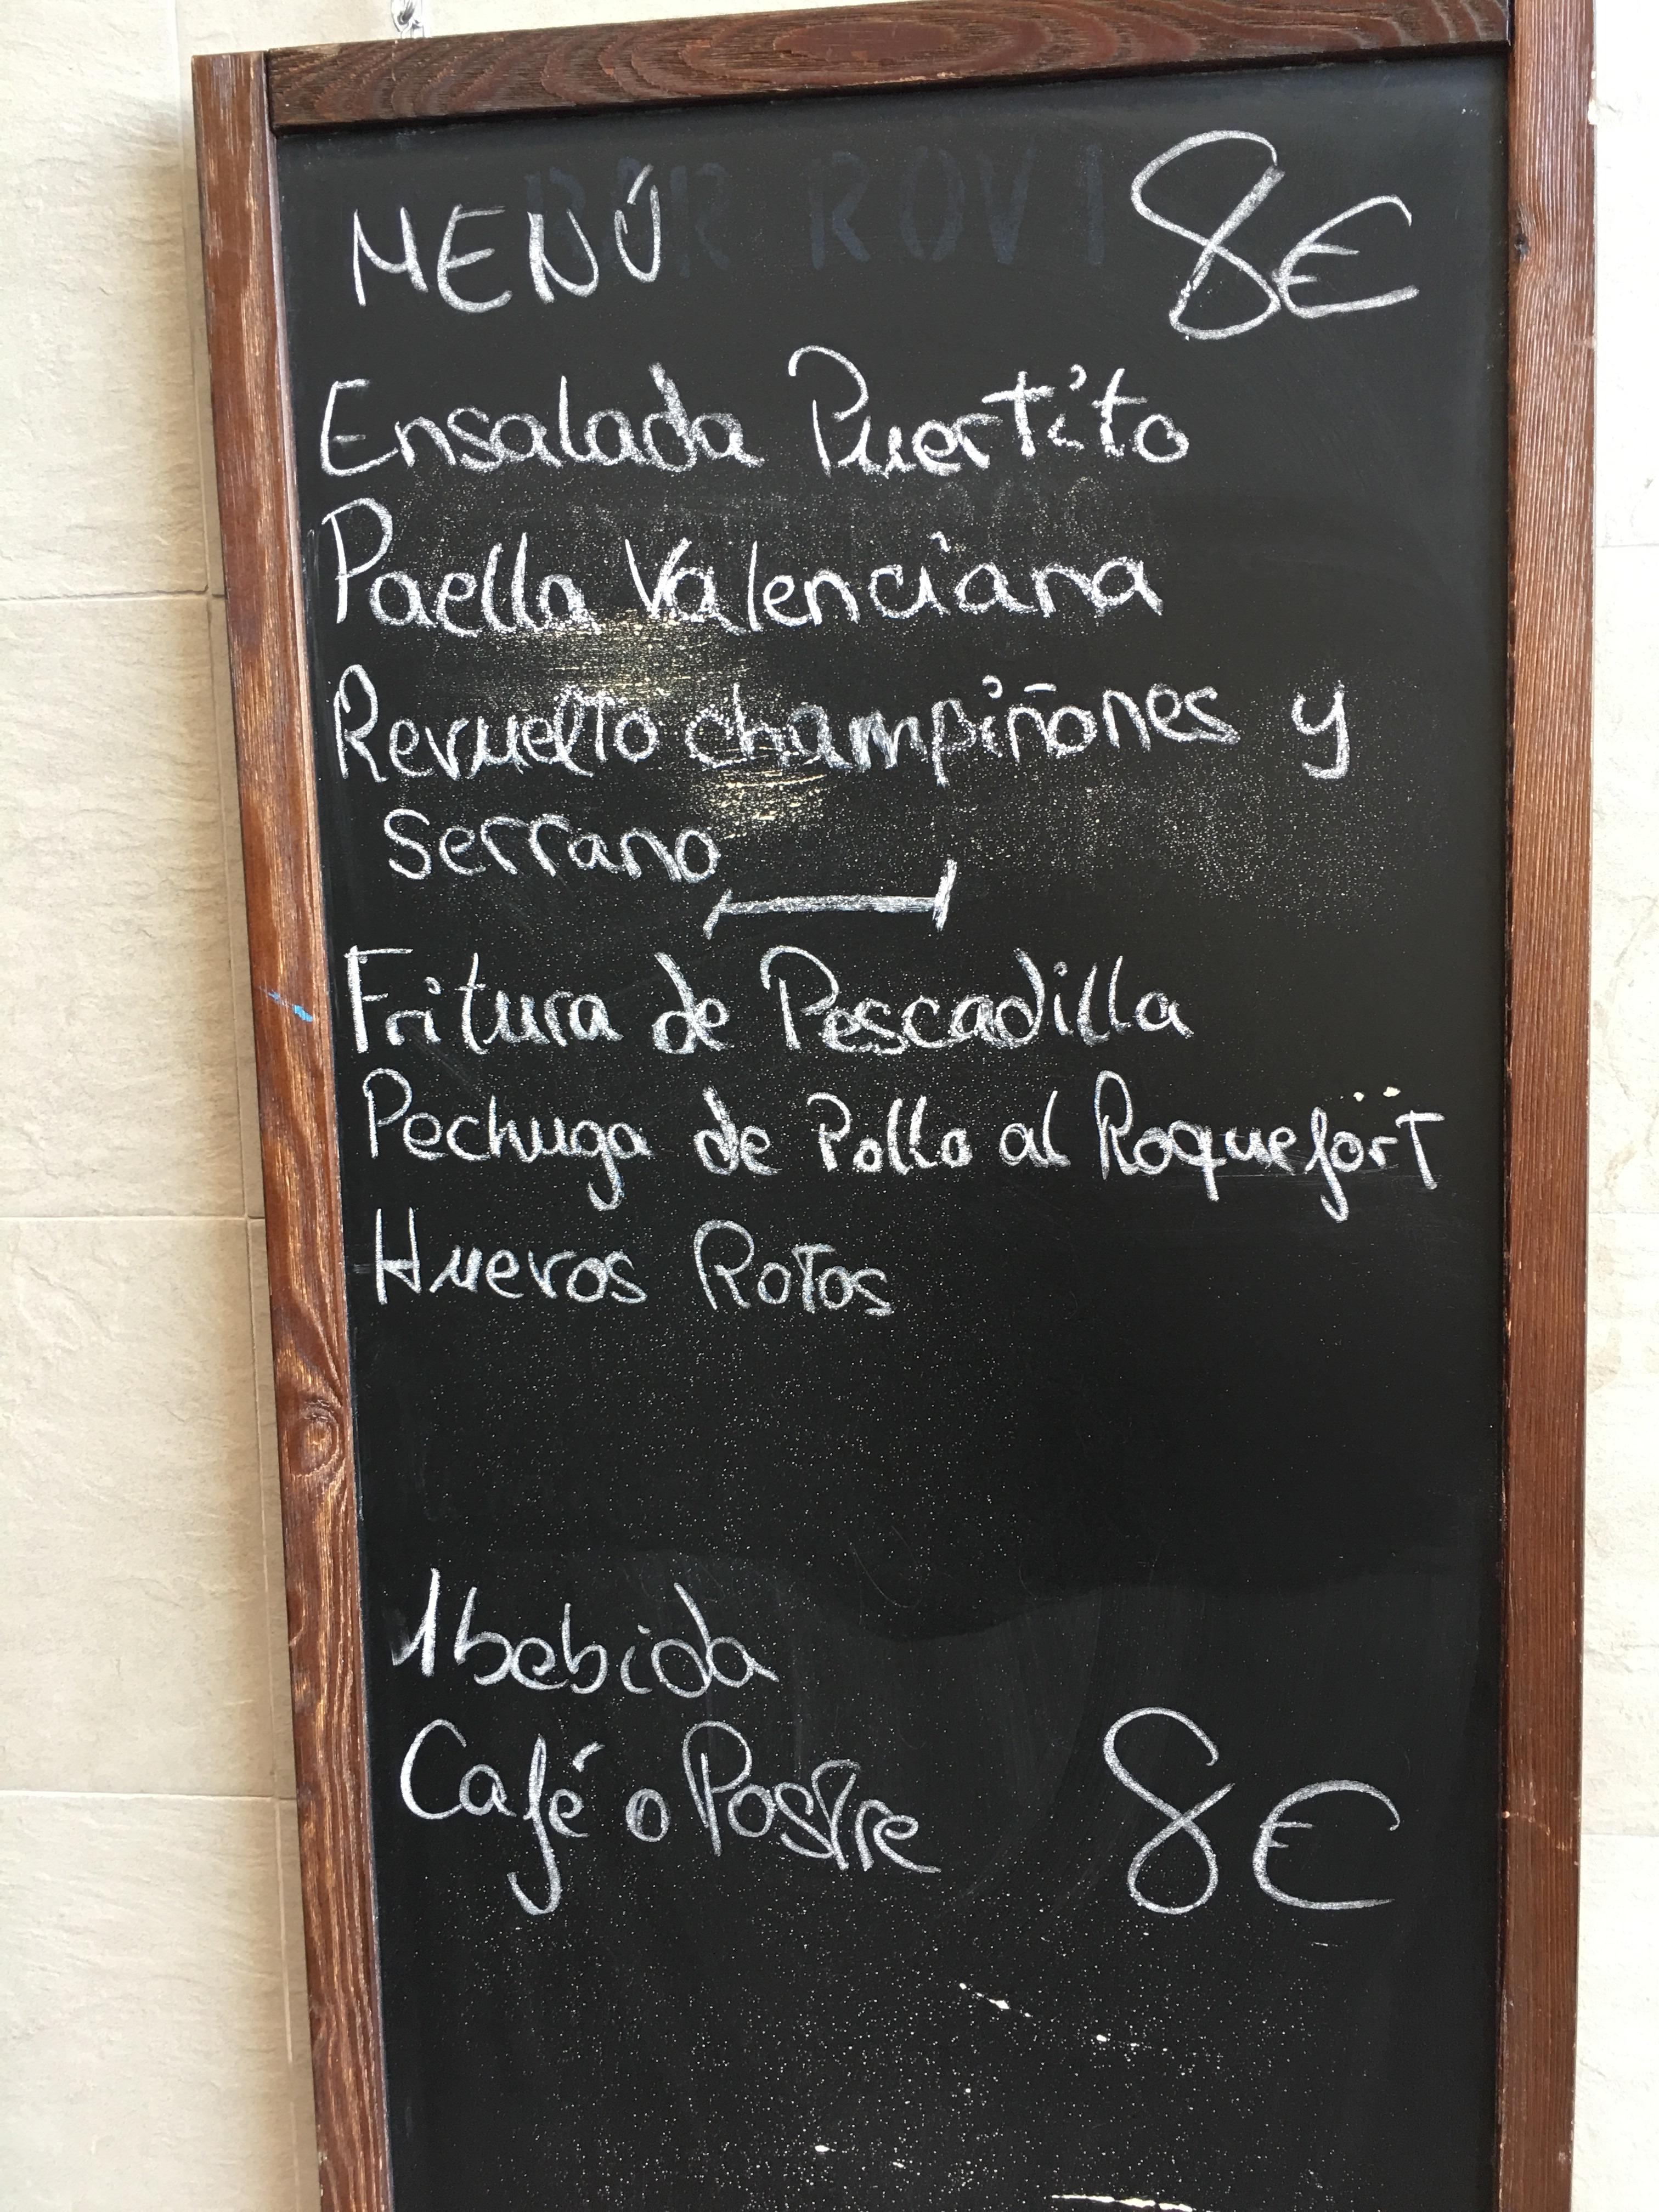 BAR ROVI
MENÚ 8€
Ensalada Puertito
Paella Valenciana
Revuelto champiñones y
serrano
Fritura de Pescadilla
Pechuga de Pollo al Roquefort
Huevos Rotos
1 bebida
Café o Postre 8€